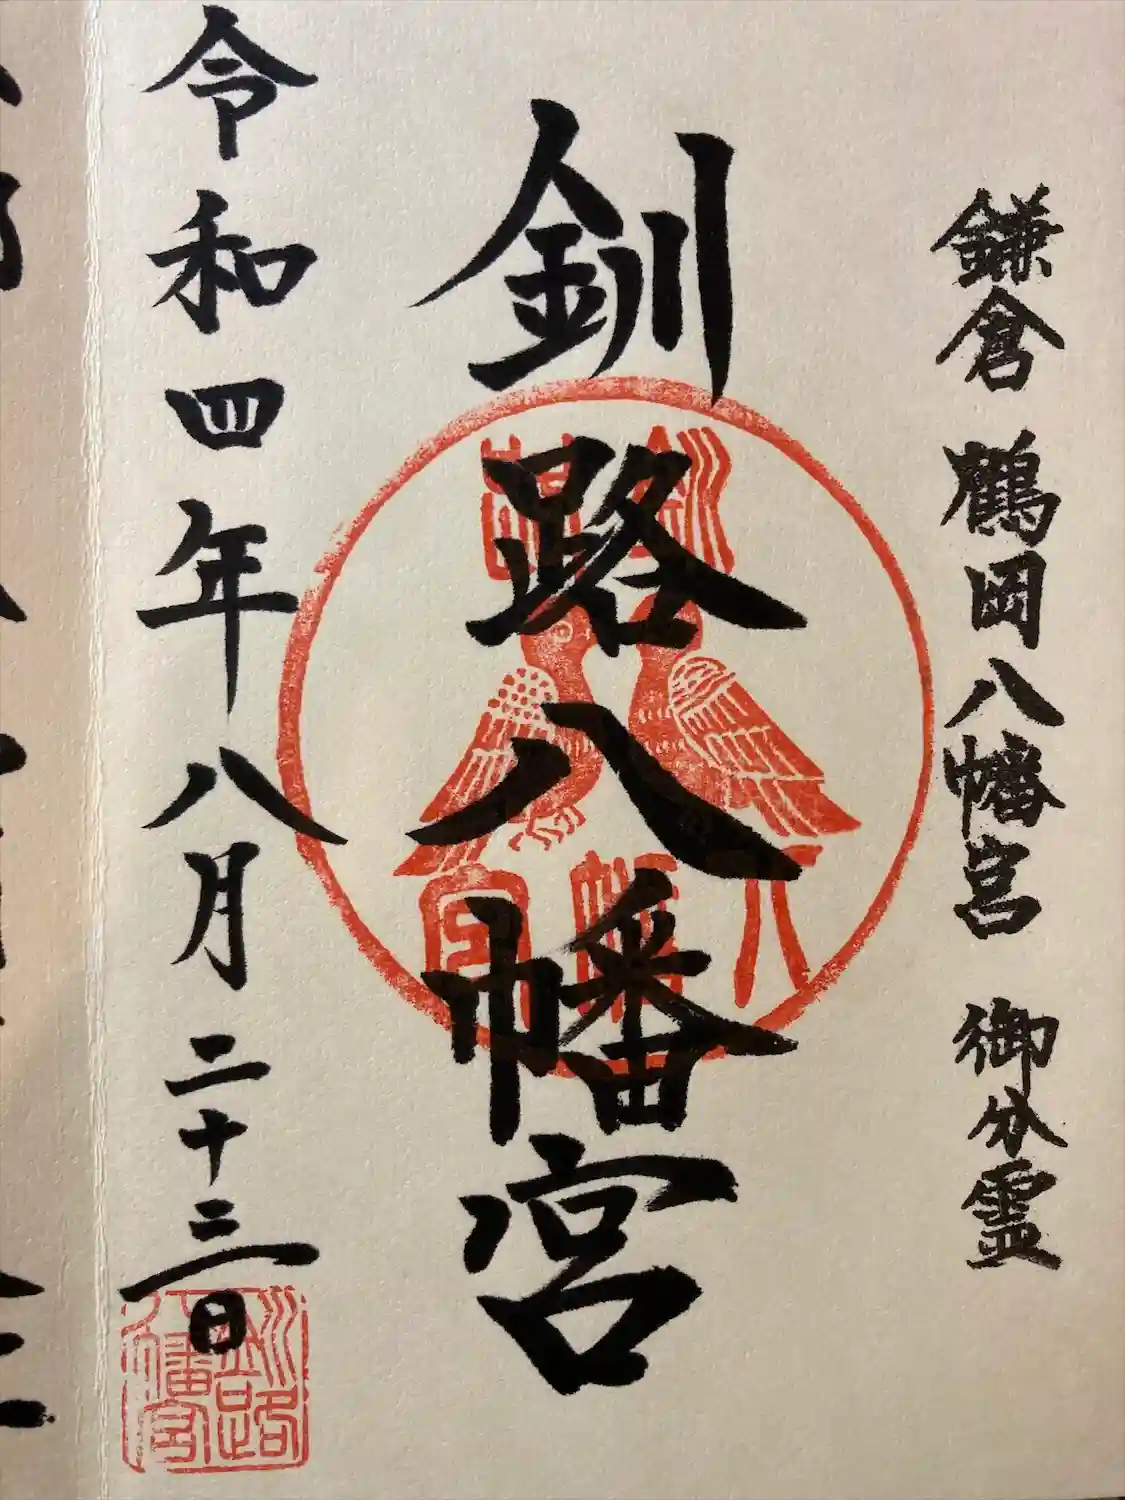 鎌倉 鶴岡八幡宮 御分霊
釧路八幡宮
釧路
八幡宮
令和四年八月二十三日
釧路
八幡宮